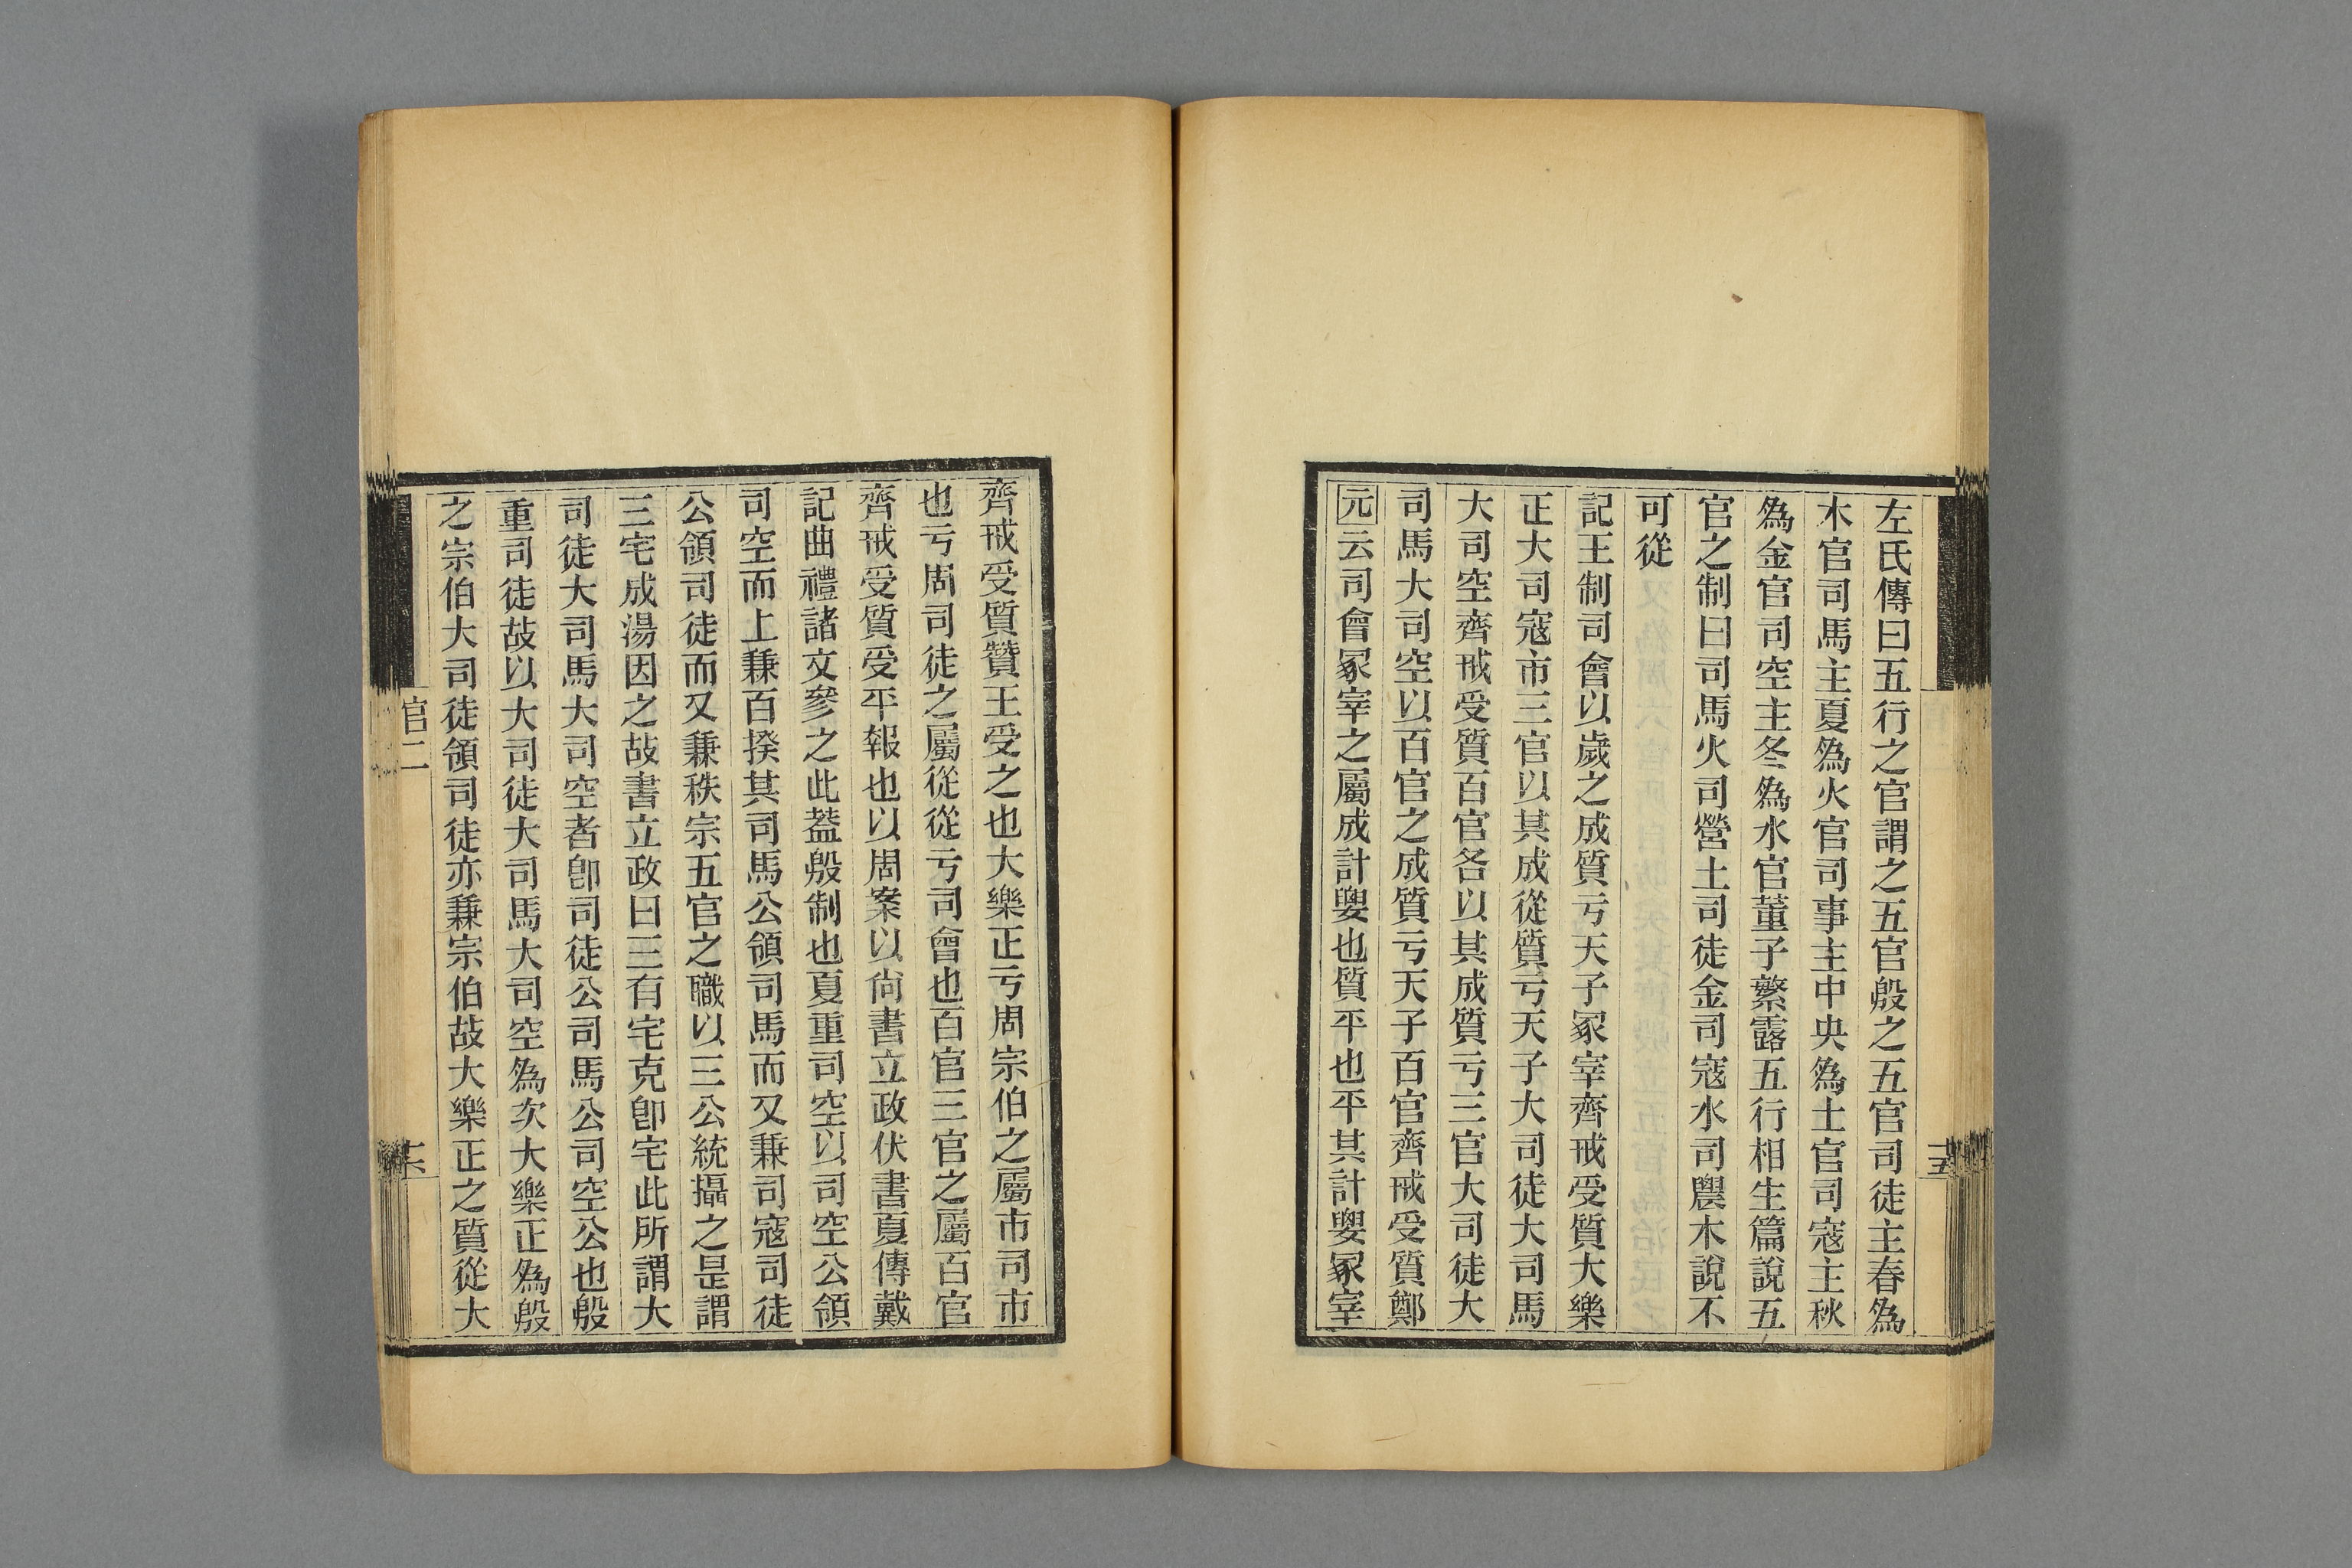 左氏傳曰五行之官謂之五官殷之五官司徒主春為
木官司馬主夏為火官司事主中央為土官司寇主秋
為金官司空主冬為水官董子繁露五行相生篇說五
官之制曰司馬火司營土司徒金司寇水司農木說不
可從
記王制司會以歲之成質亏天子冢宰齊戒受質大樂
正大司寇市三官以其成從質亏天子大司徒大司馬
大司空齊戒受質百官各以其成質亏三官大司徒大
司馬大司空以百官之成質亏天子百官齊戒受質鄭
元云司會冢宰之屬成計㝰也質平也平其計㝰冢宰
十五
齊戒受質贊王受之也大樂正亏周宗伯之屬市司市
也亏周司徒之屬從從亏司會也百官三官之屬百官
齊戒受質受平報也以周案以尚書立政伏書夏傳戴
記曲禮諸文參之此蓋殷制也夏重司空以司空公領
司空而上兼百揆其司馬公領司馬而又兼司寇司徒
公領司徒而又兼秩宗五官之職以三公統攝之是謂
三宅成湯因之故書立政曰三有宅克卽宅此所謂大
司徒大司馬大司空者卽司徒公司馬公司空公也殷
重司徒故以大司徒大司馬大司空為次大樂正為殷
之宗伯大司徒領司徒亦兼宗伯故大樂正之質從大
官二
十六